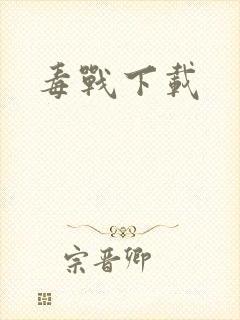 毒戰下載
宗晋卿